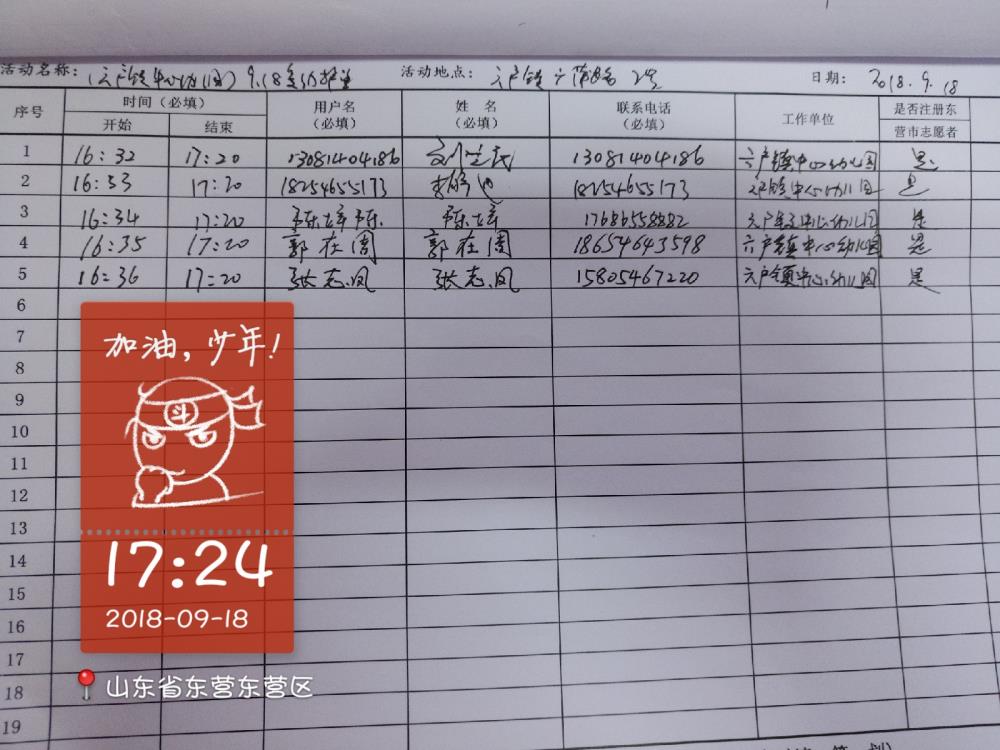 活动名称：（六户镇中心幼儿园）9.18 活动地点：六户镇 日期：2018.9.18
序号 时间（必填） 用户名（必填） 姓名（必填） 联系电话（必填） 工作单位 是否注册东营市志愿者
开始 结束
1 16:32 17:20 13081404186 13081404186 六户镇中心幼儿园 是
2 16:33 17:20 18254655173 18254655173 六户镇中心幼儿园 是
3 16:34 17:20 17686558882 六户镇中心幼儿园 是
4 16:35 17:20 郭在周 郭在周 18654643598 六户镇中心幼儿园 是
5 16:36 17:20 张志凤 张志凤 15805467220 六户镇中心幼儿园 是
6
7
8
9
10
11
12
13
14
15
16
17
18
19
加油，少年！
斗
17:24
2018-09-18
山东省东营东营区